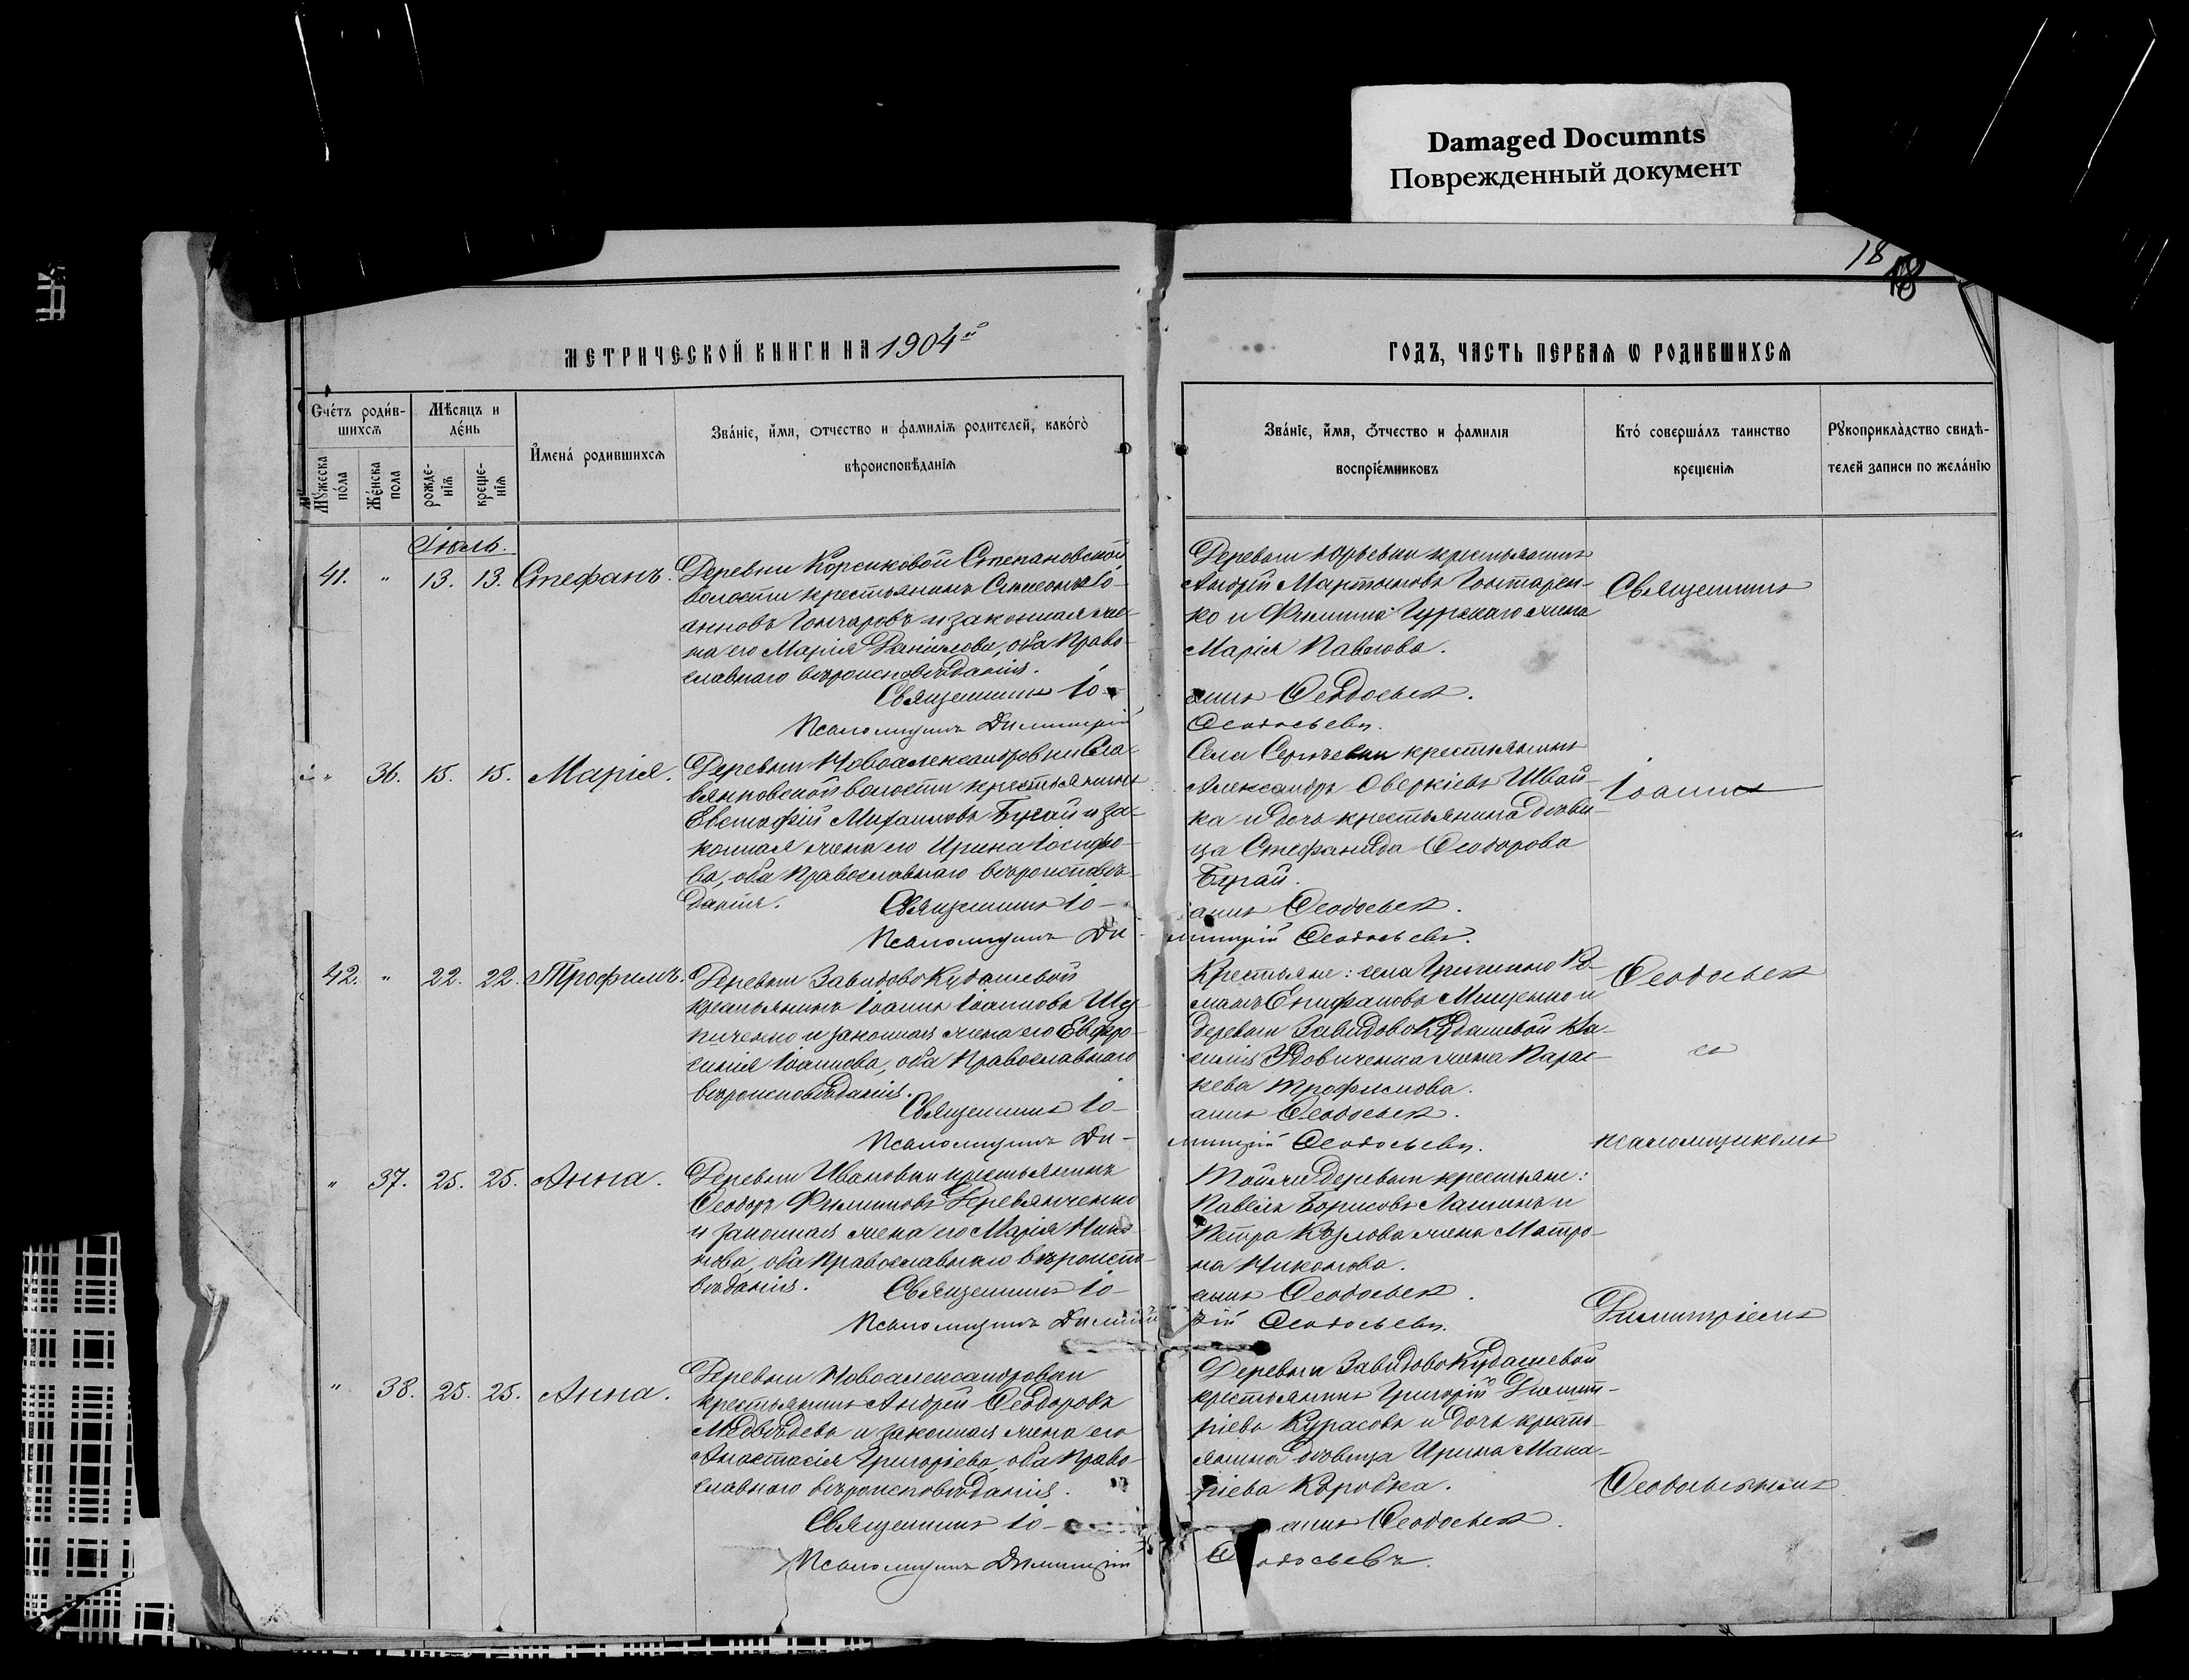 Damaged Documnts
Поврежденный документ
18
18
МЕТРИЧЕСКОЙ КНИГИ НА 1904й
ГОДЪ, ЧАСТЬ ПЕРВАЯ Ѡ РОДИВШИХСѦ
Счетъ родив-
шихсѧ
Мѣсяцъ и
день
Мꙋжеска
пола
Женска
пола
рожде-
нїѧ
креще-
нїѧ
Имена родившихсѧ
Званїе, имя, ѿчество и фамилїѧ родителей, какого
вѣроисповѣданїѧ
Званїе, имя, ѿчество и фамилїѧ
воспрїемниковъ
Кто совершалъ таинство
крещенїѧ
Рꙋкоприкладство свидѣ-
телей записи по желанїю
Іюль.
41. " 13. 13. Стефанъ.
Деревни Корсиковой Степановской
волости крестьянинъ Симеонъ Іо-
анновъ Гончаровъ и законная же-
на его Марія Данилова, оба Право-
славнаго вѣроисповѣданія.
Священникъ Іо-
Псаломщикъ Димитрій
Деревни Юрьевки крестьянинъ
Андрей Мартыновъ Гонтарен-
ко и Филиппа жена
Марія Павлова.
аннъ Ѳеодосьевъ.
Ѳеодосьевъ.
Священникъ
" 36. 15. 15. Марія.
Деревни Новоалександровки Сла-
вянковской волости крестьянинъ
Евстафій Михаиловъ Бугай и за-
конная жена его Ирина Іосифо-
ва, оба Православнаго вѣроисповѣ-
данія. Священникъ Іо-
Псаломщикъ Ди-
Села Сергѣевки крестьянинъ
Александръ Оверкіевъ Швай-
ка и дочь крестьянина дѣви-
ца Стефанида Ѳеодорова
Бугай.
аннъ Ѳеодосьевъ.
митрій Ѳеодосьевъ.
Іоаннъ
42. " 22. 22. Трофимъ.
Деревни Завидово Кудашевой
крестьянинъ Іоаннъ Іоанновъ Шу-
пиченко и законная жена его Евфро-
синія Іоаннова, оба Православнаго
вѣроисповѣданія.
Священникъ Іо-
Псаломщикъ Ди-
Крестьяне: села Гришино Ро-
манъ Епифановъ Мищенко и
деревни Завидово Кудашевой Ва-
силія Удовиченка жена Парас-
кева Трофимова.
аннъ Ѳеодосьевъ.
митрій Ѳеодосьевъ.
Ѳеодосьевъ
съ
псаломщикомъ
" 37. 25. 25. Анна.
Деревни Ивановки крестьянинъ
Ѳеодоръ Филипповъ Деревянченко
и законная жена его Марія Нико-
нова, оба Православнаго вѣроиспо-
вѣданія. Священникъ Іо-
Псаломщикъ Димит
Той же деревни крестьяне:
Павелъ Борисовъ Лашинъ и
Петра Козлова жена Матро-
на Никонова.
аннъ Ѳеодосьевъ.
рій Ѳеодосьевъ.
Димитріемъ
" 38. 25. 25. Анна.
Деревни Новоалександровки
крестьянинъ Андрей Ѳеодоровъ
Медвѣдевъ и законная жена его
Анастасія Григоріева, оба Право-
славнаго вѣроисповѣданія.
Священникъ Іо-
Псаломщикъ Димитрій
Деревни Завидово Кудашевой
крестьянинъ Григорій Димит-
ріевъ Курасовъ и дочь кресть-
янина дѣвица Ирина Мака-
ріева Коробка.
аннъ Ѳеодосьевъ.
Ѳеодосьевъ.
Ѳеодосьевымъ